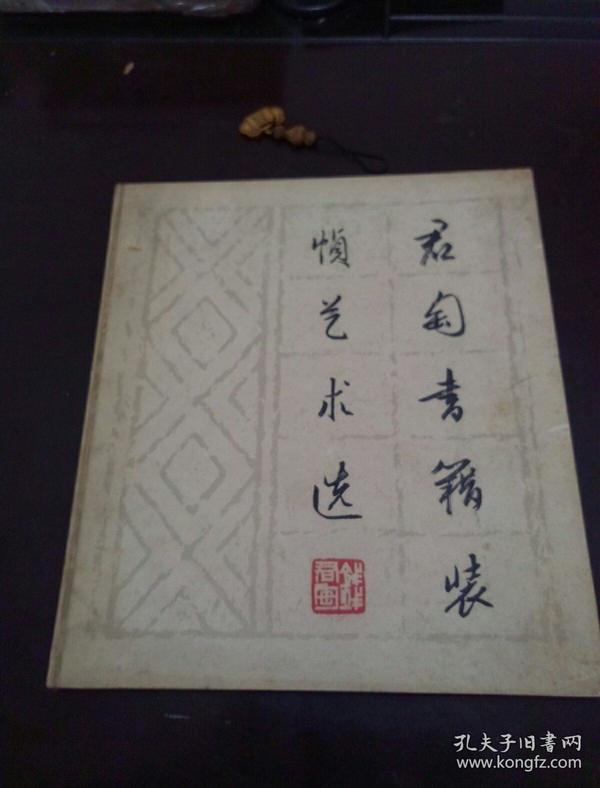 君匋书籍装
帧艺术选
钱君匋
孔夫子旧书网
www.kongfz.com